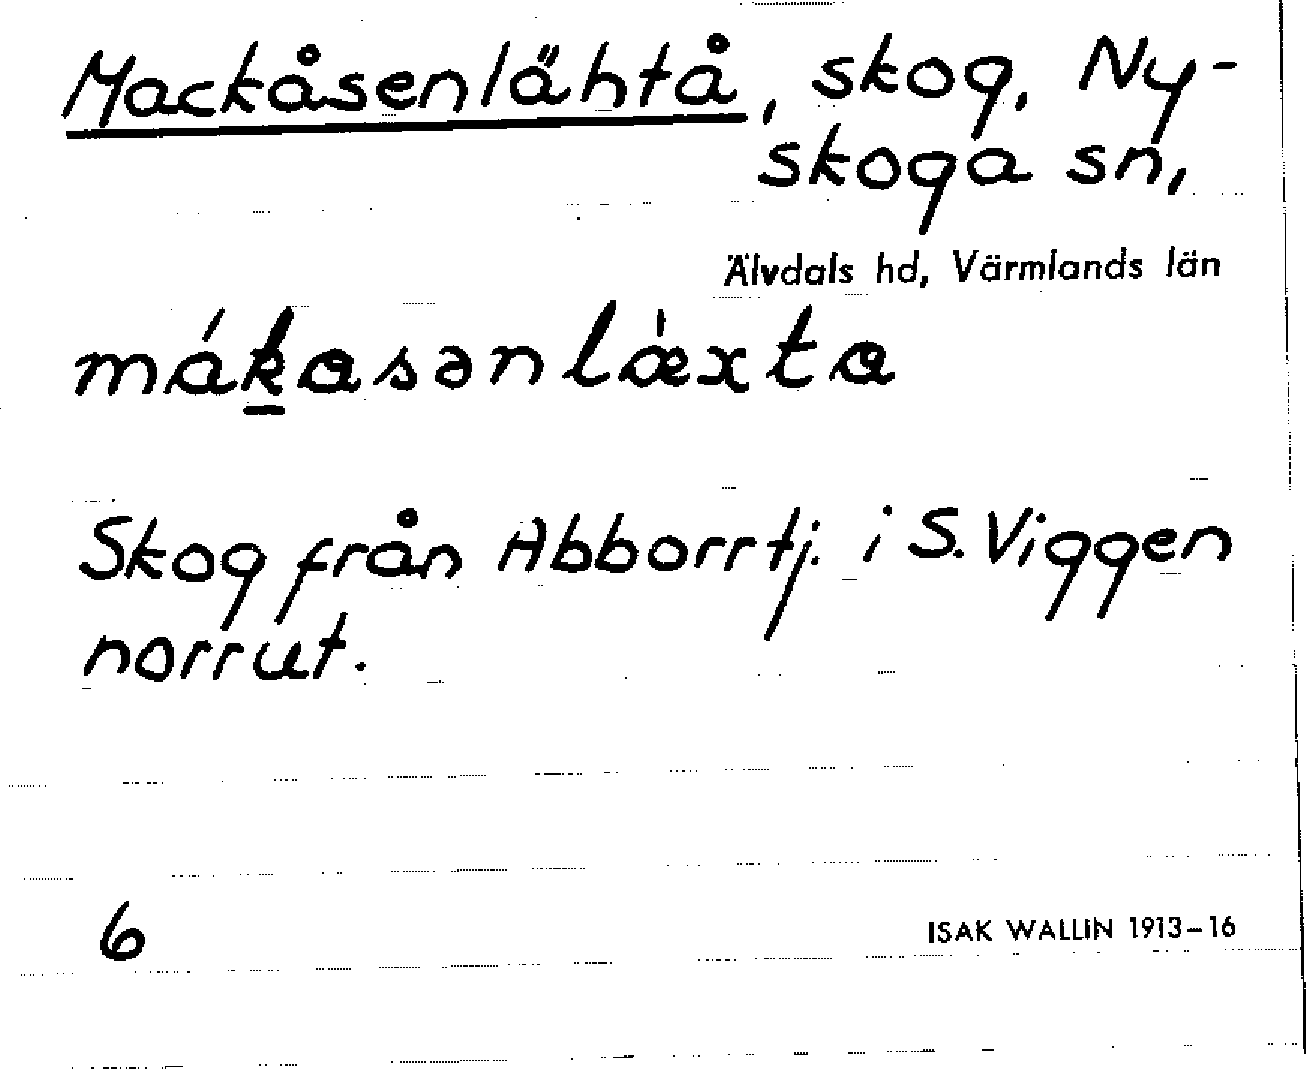 Mackåsenlähtå, skog, Ny-
skoga sn,
Älvdals hd, Värmlands län
mákasənlǽxta
Skog från Abborrtj. i S. Viggen
norrut.
6
ISAK WALLIN 1913–16